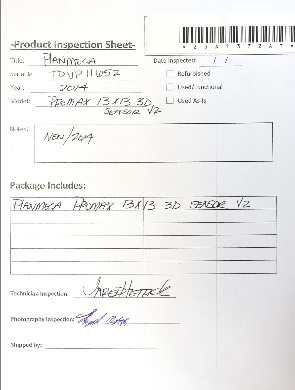 -Product Inspection Sheet-
Title: PLANMECA
Date Inspected: / /
Serial #: TDVP111652
Refurbished
Year: 2014
Used/Functional
Model: PROMAX 13X13 3D SENSOR V2
Used As-Is
Notes: NEW/2014
Package Includes:
PLANMECA PROMAX 13X13 3D SENSOR V2
Technician Inspection:
Photography Inspection:
Shipped by: